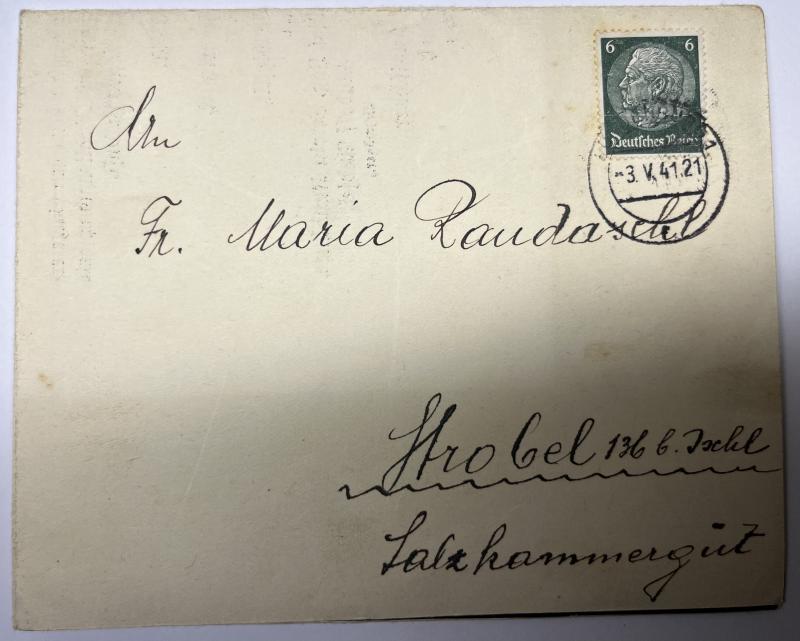 6 6
Deutsches Reich
-3.V.41.21
An
Fr. Maria Raudaschl
Strobel 136 b. Ischl
Salzkammergut